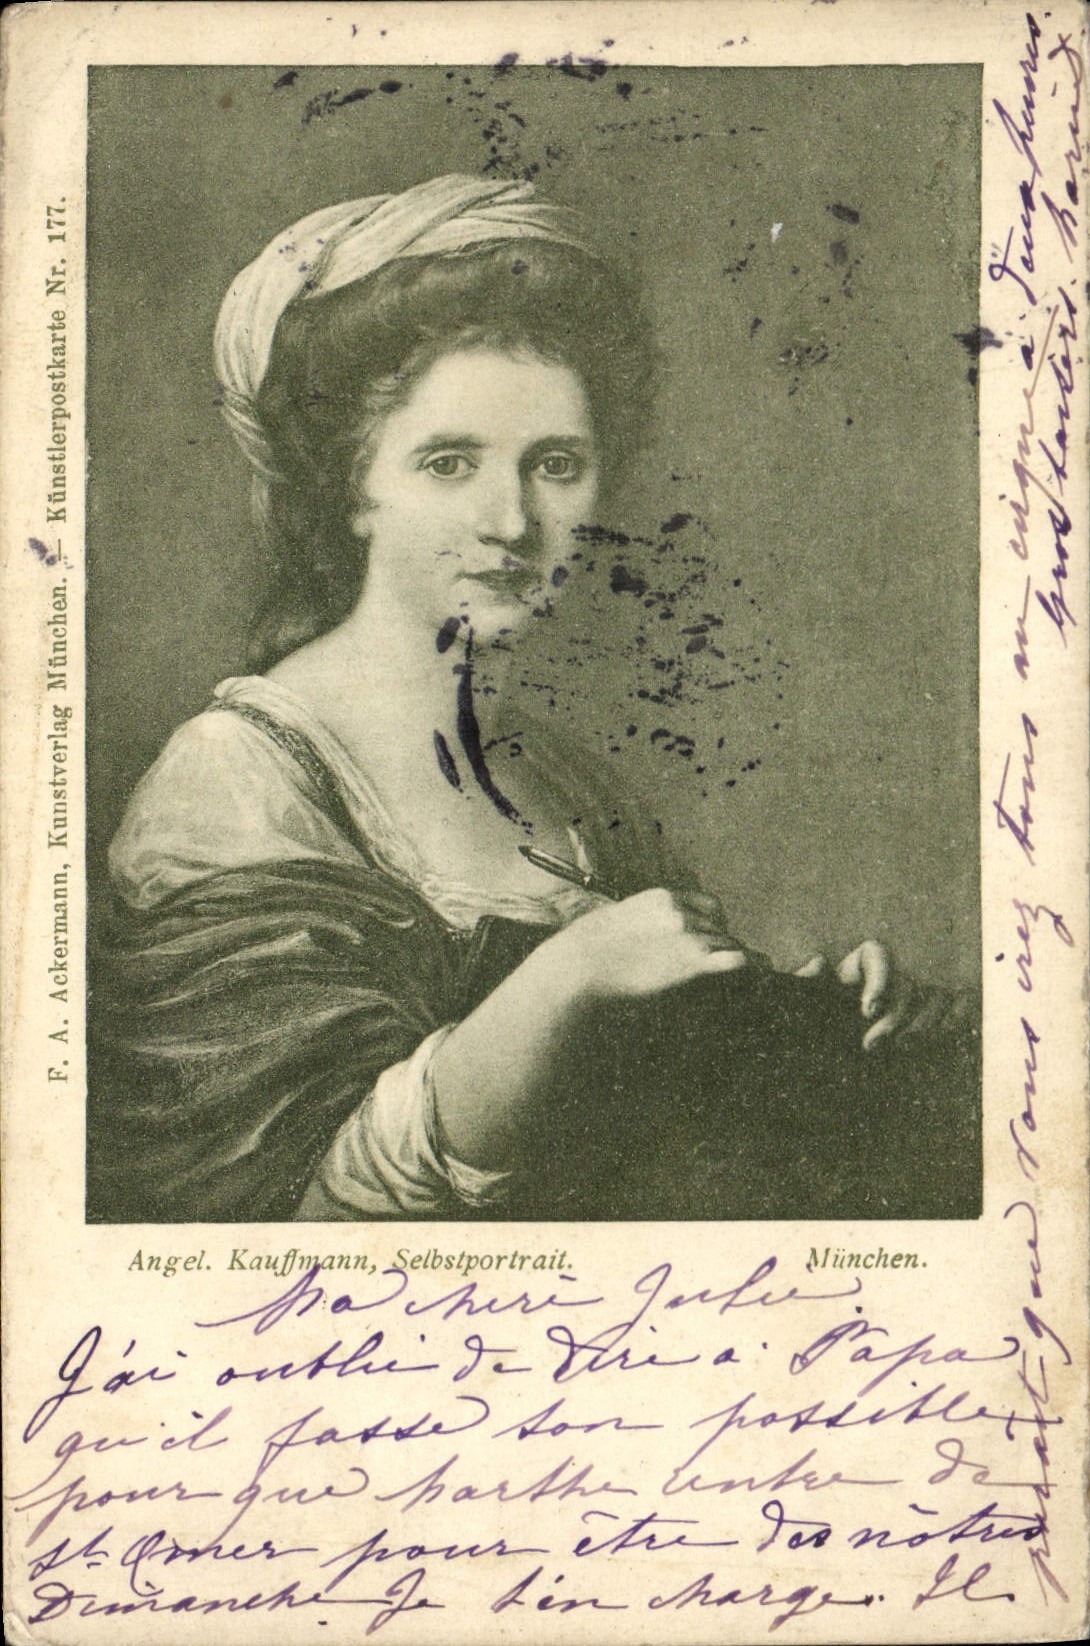 F. A. Ackermann, Kunstverlag München. — Künstlerpostkarte Nr. 177.
Angel. Kauffmann, Selbstportrait. München.
Ma cheré Julie
J'ai oublié de dire a Papa
qu'il fasse son possible
pour que Marthe rentre de
St Omer pour être des nôtres
Dimanche Je t'en charge. Il
parait que vous irez tous au cirque à deux heures.
Gros baisers. Marie